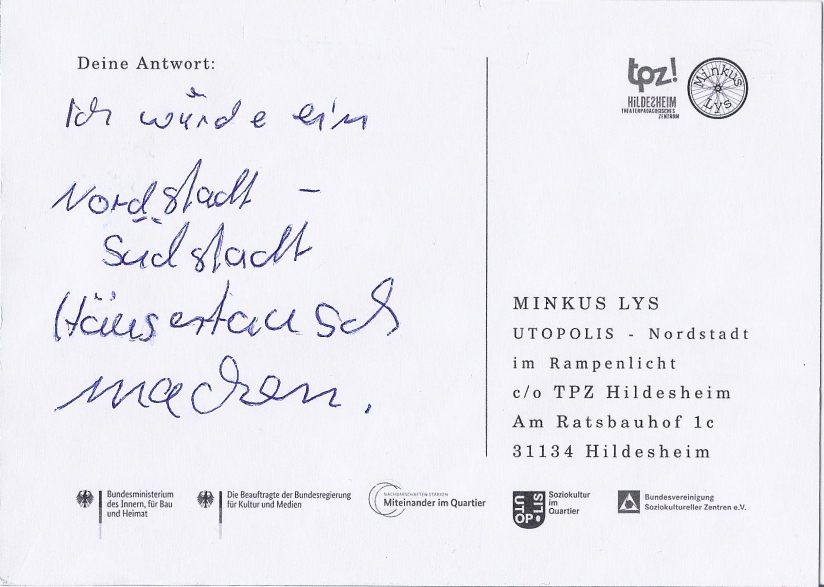 Deine Antwort:
Ich würde ein
Nordstadt -
Südstadt
Häusertausch
machen.
tpz!
HiLDESHEiM
THEATERPÄDAGOGISCHES
ZENTRUM
Minkus
Lys
MINKUS LYS
UTOPOLIS - Nordstadt
im Rampenlicht
c/o TPZ Hildesheim
Am Ratsbauhof 1c
31134 Hildesheim
Bundesministerium
des Innern, für Bau
und Heimat
Die Beauftragte der Bundesregierung
für Kultur und Medien
NACHBARSCHAFTEN STÄRKEN
Miteinander im Quartier
UTOPOLIS
Soziokultur
im
Quartier
Bundesvereinigung
Soziokultureller Zentren e.V.